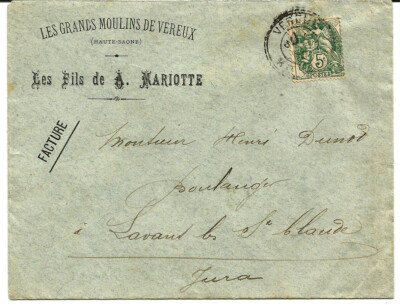 LES GRANDS MOULINS DE VEREUX
(HAUTE-SAONE)
Les Fils de A. MARIOTTE
5c
POSTES
FACTURE
Monsieur Henri Dunod
boulanger
à Lavant les St Claude
Jura